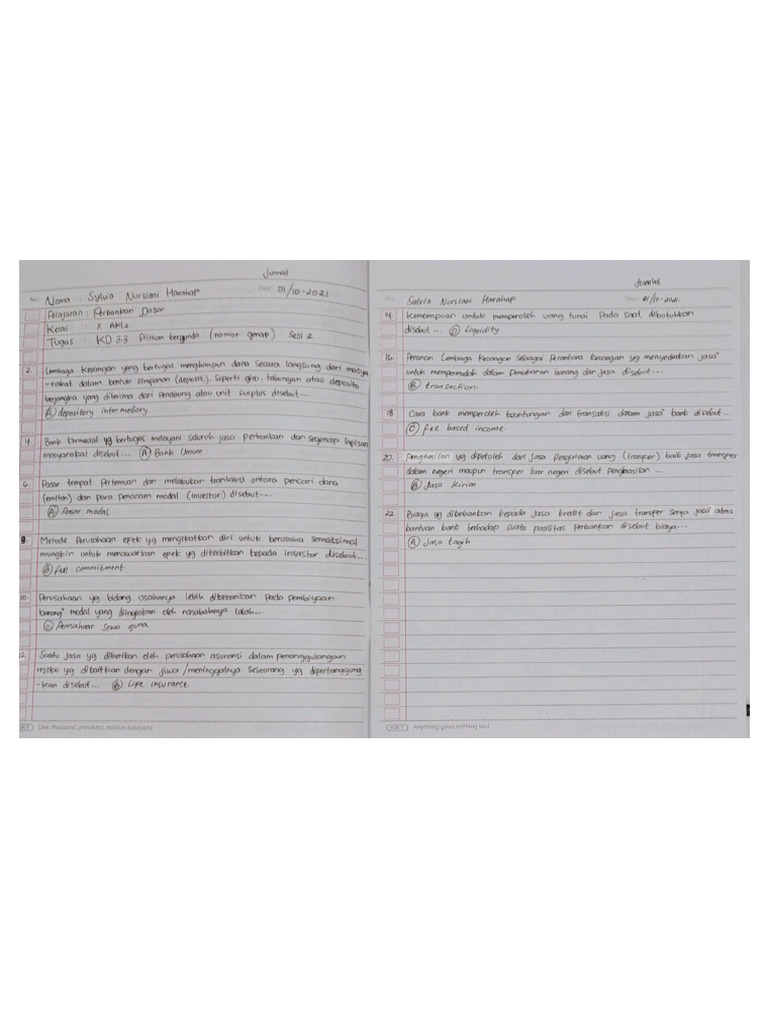 Jumat
No: Nama : Sylvia Nursiani Harahap Date: 01/10-2021
Pelajaran : Perbankan Dasar
Kelas : X Akl 2
Tugas : KD 3.3 Pilihan berganda (nomor genap) Sesi 2
2. Lembaga keuangan yang bertugas menghimpun dana secara langsung dari masya
-rakat dalam bentuk simpanan (deposit). Seperti giro, tabungan atau deposito
berjangka yang diterima dari penabung atau unit surplus disebut...
A depository intermediary.
4. Bank komersial yg bertugas melayani seluruh jasa perbankan dan segenap lapisan
masyarakat disebut... A Bank Umum
6. Pasar tempat pertemuan dan melakukan transaksi antara pencari dana
(emiten) dan para penanam modal (investor) disebut...
A Pasar modal
8. Metode perusahaan epek yg mengikatkan diri untuk berusaha semaksimal
mungkin untuk menawarkan epek yg diterbitkan kepada investor disebut...
B full commitment.
10. Perusahaan yg bidang usahanya lebih ditekankan pada pembiyaan
barang² modal yang diinginkan oleh nasabahnya ialah...
C Perusahaan sewa guna.
12. Suatu jasa yg diberikan oleh perusahaan asuransi dalam penanggulangan
resiko yg dikaitkan dengan jiwa /meninggalnya seseorang yg dipertanggung
-kan disebut... B Life insurance.
One thousand problems, million solutions
Jumat
No: Sylvia Nursiani Harahap Date: 01/10-2021.
14. Kemampuan untuk memperoleh uang tunai pada saat dibutuhkan
disebut... D Liquidity
16. Peranan Lembaga keuangan sebagai perantara keuangan yg menyediakan jasa²
untuk mempermudah dalam penukaran barang dan jasa disebut...
B transaction.
18 Cara bank memperoleh keuntungan dari transaksi dalam jasa² bank disebut...
C fee based income.
20. Penghasilan yg diperoleh dari jasa pengiriman uang (tranper) baik jasa transper
dalam negeri maupun transper luar negeri disebut penghasilan ...
B Jasa kirim
22. Biaya yg dibebankan kepada jasa kredit dan jasa transper serta jasa² atas
bantuan bank terhadap suatu pasilitas perbankan disebut biaya...
A Jasa tagih
Anything good, nothing bad